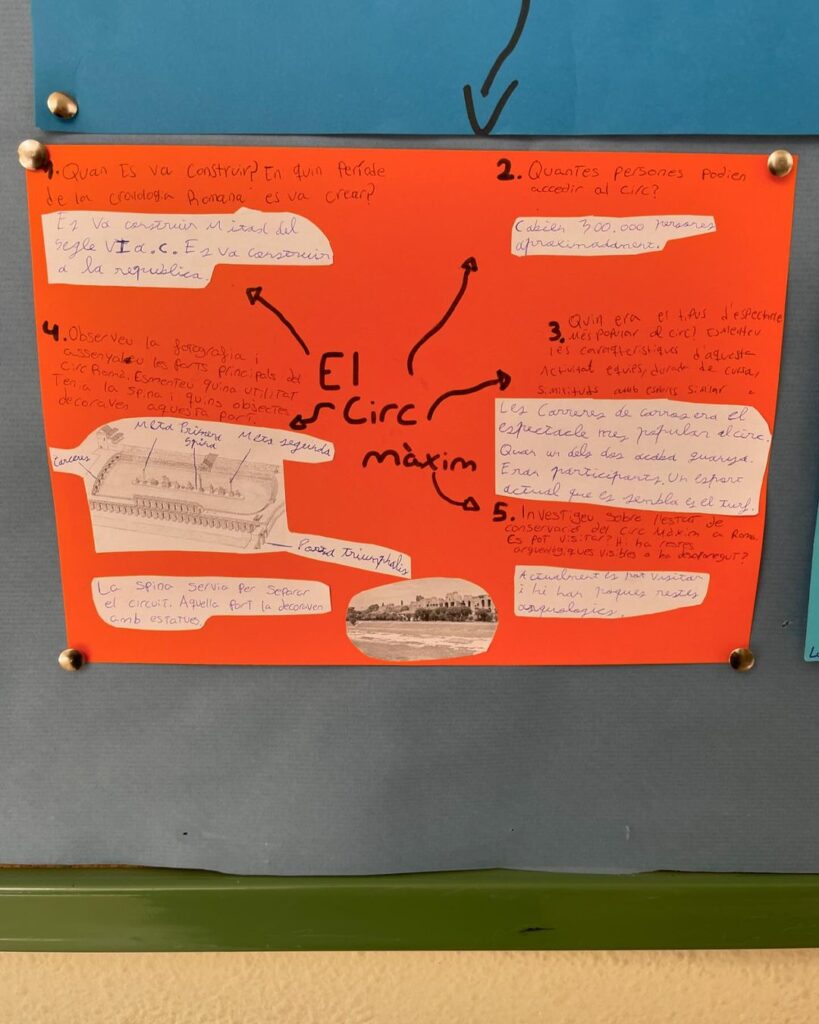 1. Quan Es va construir? En quin Període
de la cronologia Romana es va crear?
Es va construir Mitad del
Segle VI a.C. Es va construir
a la republica.
2. Quantes persones podien
accedir al circ?
Cabien 300.000 Persones
aproximadament.
El
Circ
màxim
3. Quin era el tipus d'espectacle
Més popular al circ? Esmenteu
les característiques d'aquesta
Activitat equips, durada de cursa,
similituds amb esports
Les Carreres de carros era el
espectacle mes popular al circ.
Quan un dels dos acaba guanya.
Eran participants. Un esport
actual que es sembla es el turf.
4. Observeu la fotografia i
assenyaleu les parts principals del
Circ Romà. Esmenteu quina utilitat
Tenia la spina i quins objectes
decoraven aquesta part.
Meta Primera
Spina
Meta segunda
Carceres
Porta Triumphalis
La spina servia per separar
el circuit. Aquella part la decoraven
amb estatues
5. Investigeu sobre l'estat de
conservació del Circ Màxim a Roma.
Es pot visitar? Hi ha restes
arqueològiques visibles o ha desaparegut?
Actualment es pot visitar
i hi han poques restes
arqueologics.